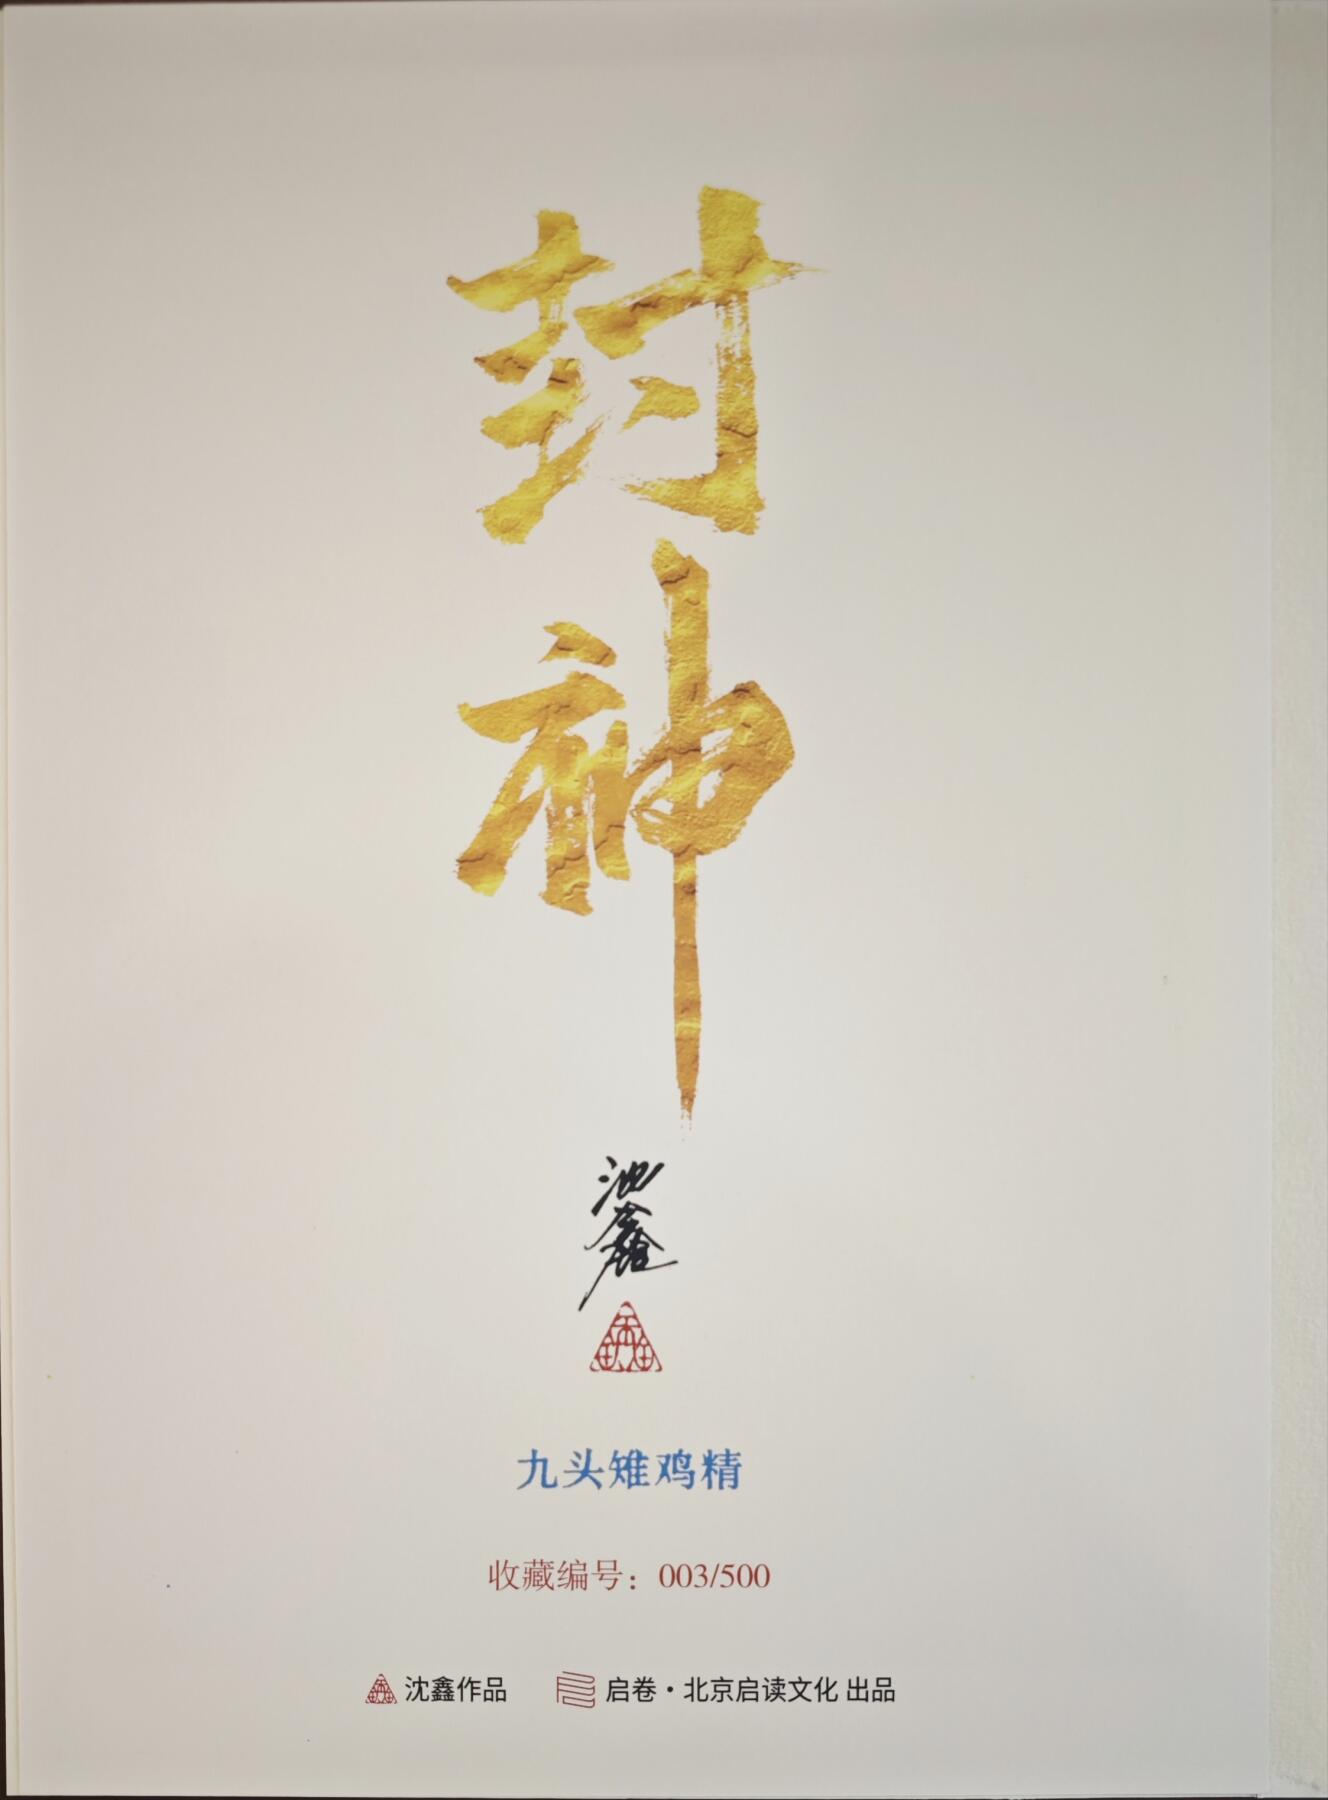 封神
沈鑫
九头雉鸡精
收藏编号：003/500
沈鑫作品 启卷·北京启读文化 出品